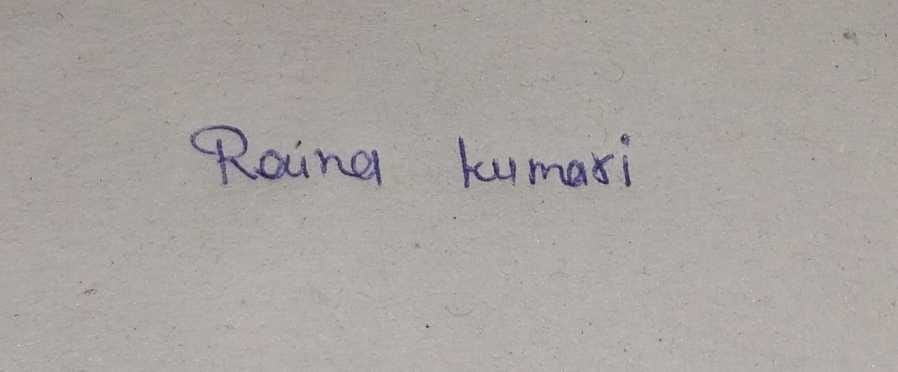 Raina kumari